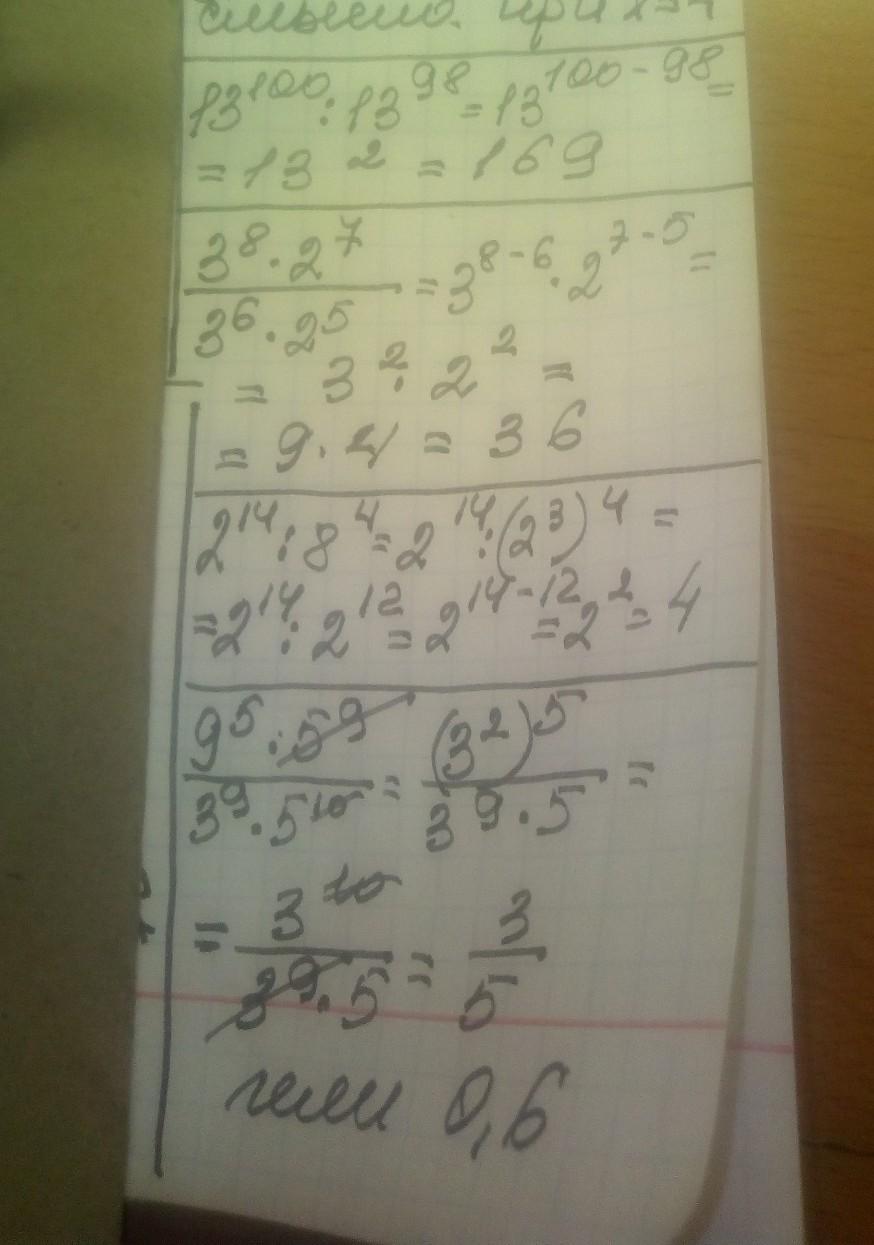 смысла. при
13¹⁰⁰ : 13⁹⁸ = 13¹⁰⁰⁻⁹⁸ =
= 13² = 169
3⁸ · 2⁷ / 3⁶ · 2⁵ = 3⁸⁻⁶ · 2⁷⁻⁵ =
= 3² · 2² =
= 9 · 4 = 36
2¹⁴ : 8⁴ = 2¹⁴ : (2³)⁴ =
= 2¹⁴ : 2¹² = 2¹⁴⁻¹² = 2² = 4
9⁵ · 5⁹ / 3⁹ · 5¹⁰ = (3²)⁵ / 3⁹ · 5 =
= 3¹⁰ / 3⁹ · 5 = 3 / 5
или 0,6